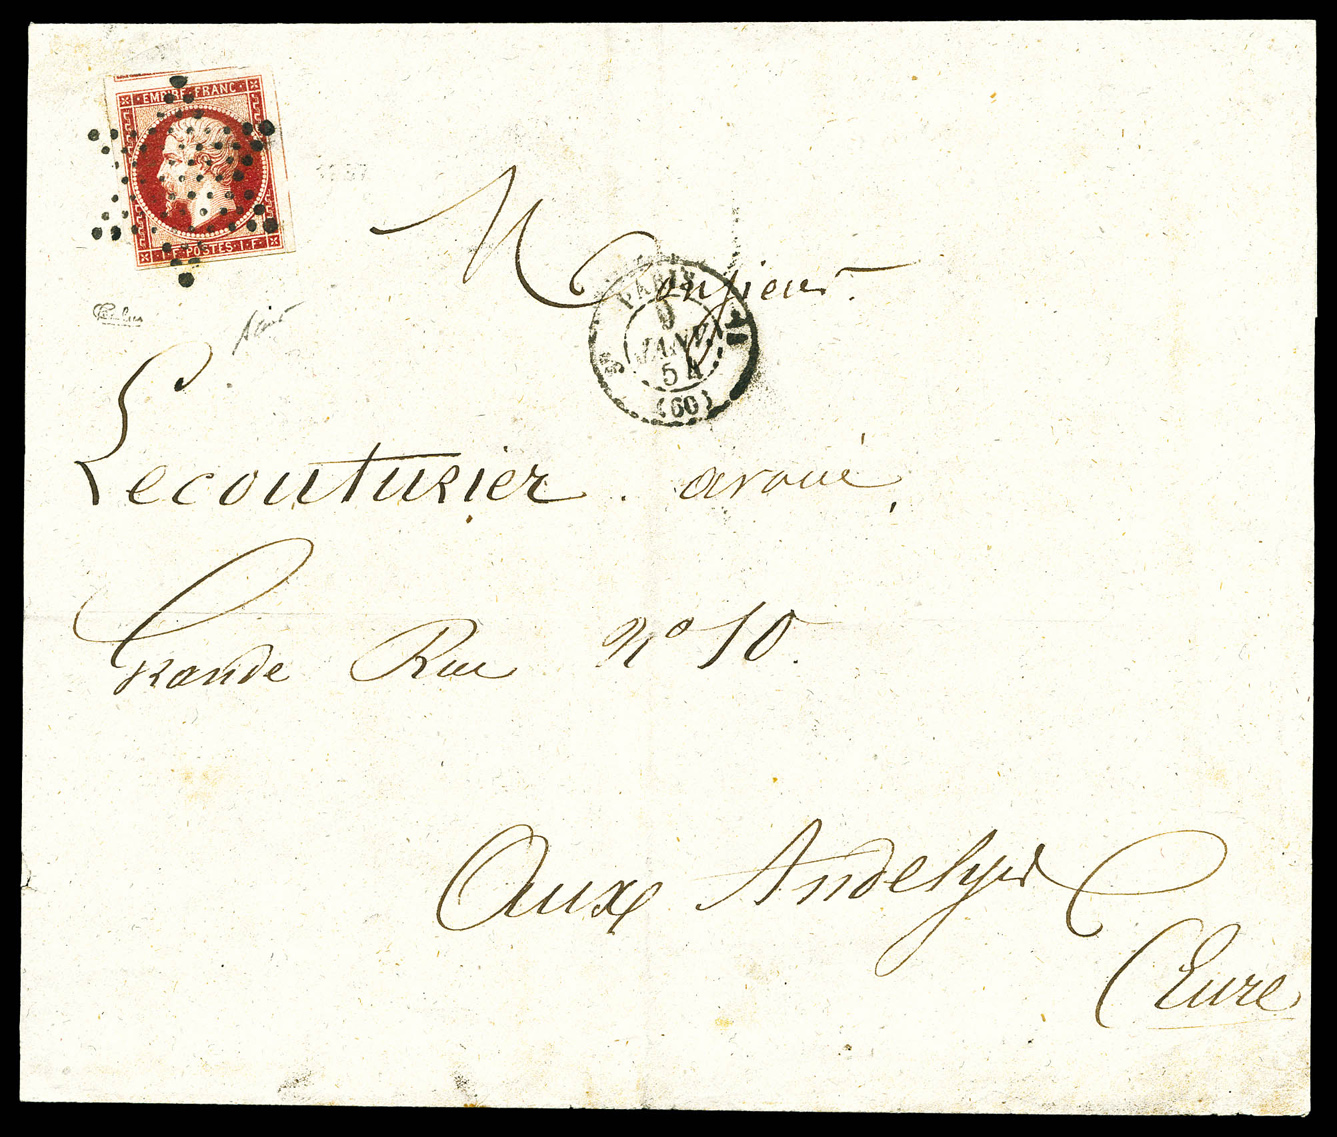 EMPIRE FRANC
1·F·POSTES·1·F·
Monsieur.
PARIS
JANV.
54
(60)
Lecouturier. avoué,
Grande Rue N° 10.
Aux Andelys
(Eure